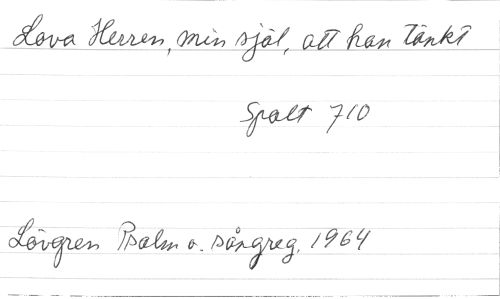 Lova Herren, min själ, att han tänkt
Spalt 710
Lövgren Psalm o. sångreg. 1964